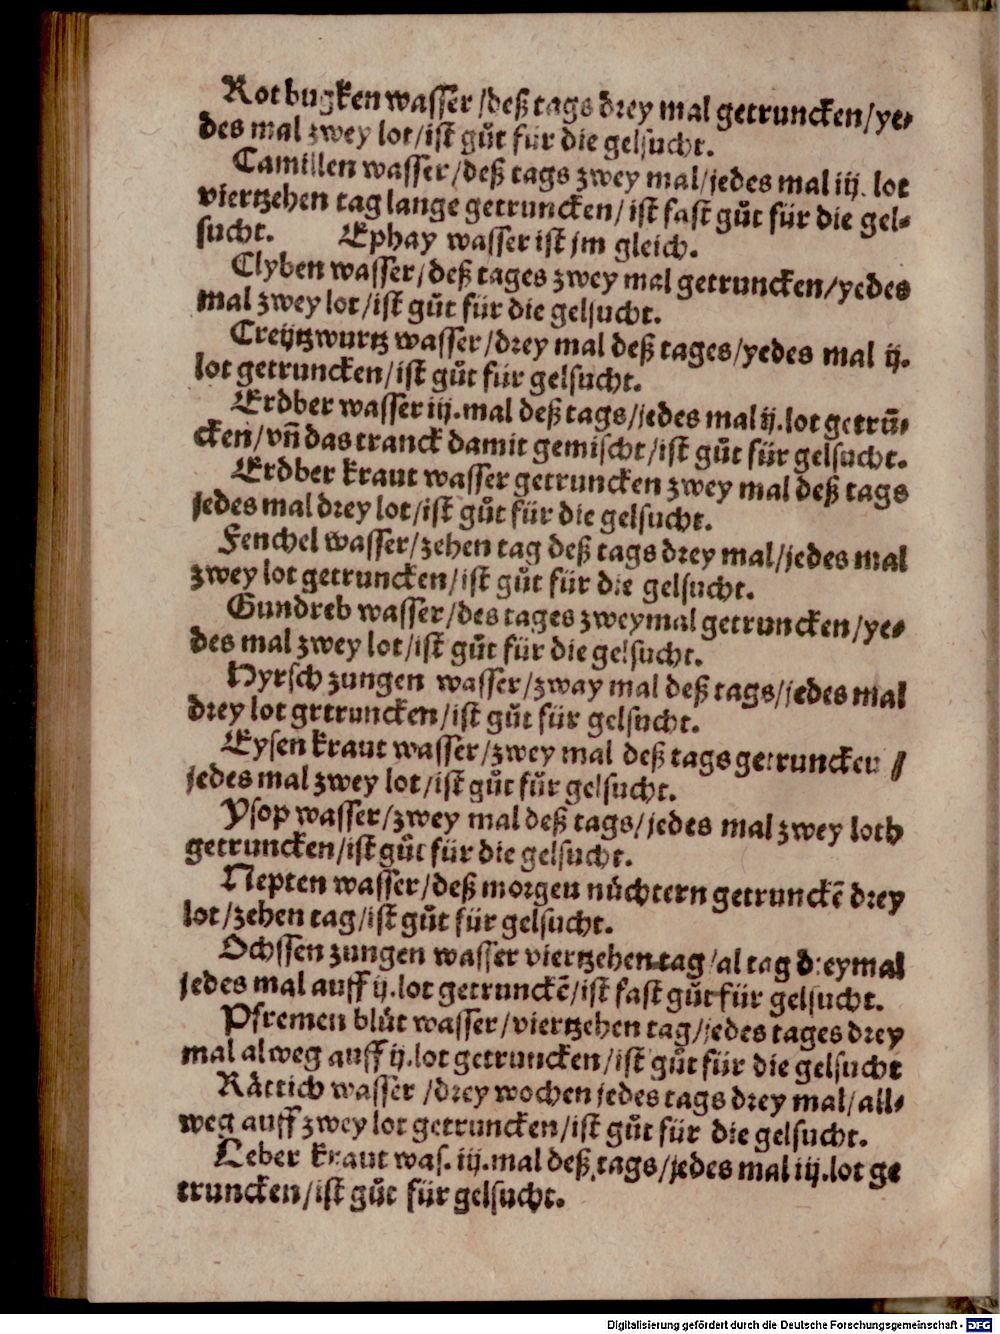 Rot bugken wasser /deß tags drey mal getruncken/ye⸗
des mal zwey lot/ist gůt für die gelsucht.
Camillen wasser/deß tags zwey mal/jedes mal iij. lot
viertzehen tag lange getruncken/ ist fast gůt für die gel⸗
sucht. Ephay wasser ist jm gleich.
Clyben wasser/deß tages zwey mal getruncken/yedes
mal zwey lot/ist gůt für die gelsucht.
Creijtzwurtz wasser/drey mal deß tages/yedes mal ij.
lot getruncken/ist gůt für gelsucht.
Erdber wasser iij.mal deß tags/jedes mal ij.lot getrũ⸗
cken/vñ das tranck damit gemischt/ist gůt für gelsucht.
Erdber kraut wasser getruncken zwey mal deß tags
jedes mal drey lot/ist gůt für die gelsucht.
Fenchel wasser/zehen tag deß tags drey mal/jedes mal
zwey lot getruncken/ist gůt für die gelsucht.
Gundreb wasser/des tages zweymal getruncken/ye⸗
des mal zwey lot/ist gůt für die gelsucht.
Hyrsch zungen wasser/zway mal deß tags/jedes mal
drey lot grtruncken/ist gůt für gelsucht.
Eysen kraut wasser/zwey mal deß tags getruncken /
jedes mal zwey lot/ist gůt für gelsucht.
Ysop wasser/zwey mal deß tags/jedes mal zwey loth
getruncken/ist gůt für die gelsucht.
Nepten wasser/deß morgen nůchtern getrunckẽ drey
lot/zehen tag/ist gůt für gelsucht.
Ochssen zungen wasser viertzehen tag/al tag dreymal
jedes mal auff ij.lot getrunckẽ/ist fast gůt für gelsucht.
Pfremen blůt wasser/viertzehen tag/jedes tages drey
mal alweg auff ij.lot getruncken/ist gůt für die gelsucht
Rättich wasser /drey wochen jedes tags drey mal/all⸗
weg auff zwey lot getruncken/ist gůt für die gelsucht.
Leber kraut was. iij.mal deß tags/jedes mal iij.lot ge
truncken/ist gůt für gelsucht.
Digitalisierung gefördert durch die Deutsche Forschungsgemeinschaft - DFG